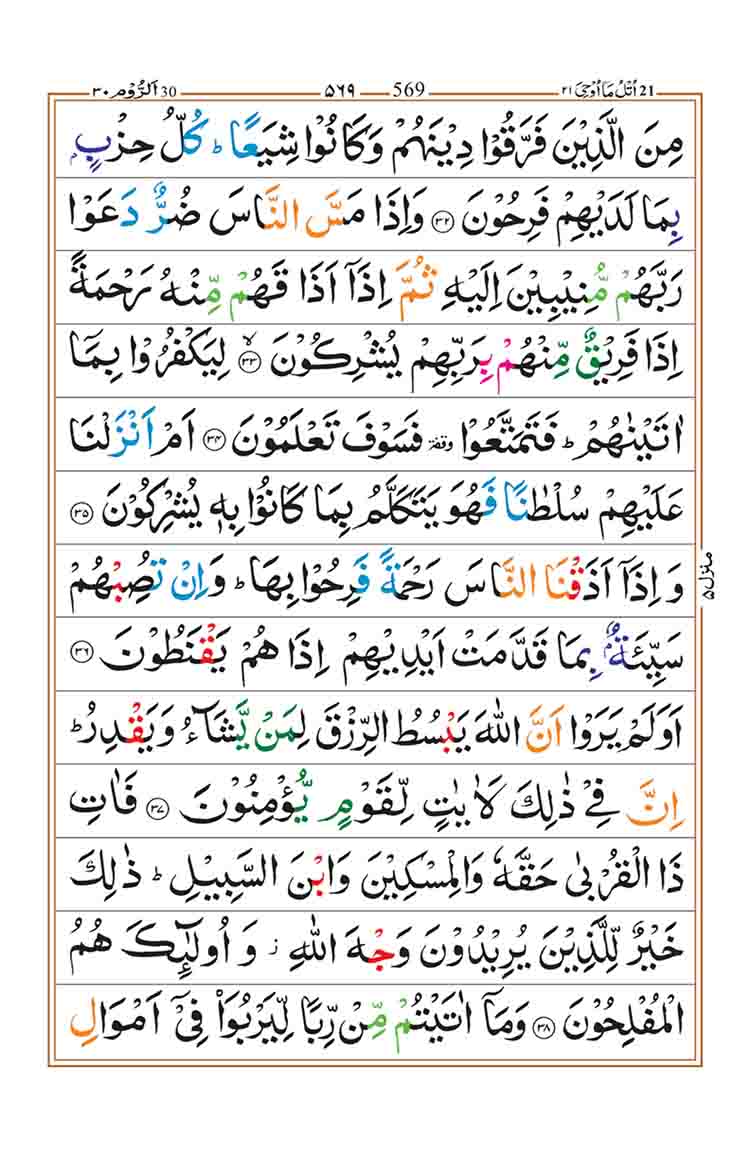 اُتْلُ مَاۤ اُوْحِیَ ٢١ 21 569 ۵۶۹ اَلرُّوْم ٣٠ 30
مِنَ الَّذِیْنَ فَرَّقُوْا دِیْنَهُمْ وَكَانُوْا شِیَعًا ؕ كُلُّ حِزْبٍۭ
بِمَا لَدَیْهِمْ فَرِحُوْنَ ۝۳۲ وَاِذَا مَسَّ النَّاسَ ضُرٌّ دَعَوْا
رَبَّهُمْ مُّنِیْبِیْنَ اِلَیْهِ ثُمَّ اِذَاۤ اَذَاقَهُمْ مِّنْهُ رَحْمَةً
اِذَا فَرِیْقٌ مِّنْهُمْ بِرَبِّهِمْ یُشْرِكُوْنَ ۝۳۳ۙ لِیَكْفُرُوْا بِمَاۤ
اٰتَیْنٰهُمْ ؕ فَتَمَتَّعُوْا وقفة فَسَوْفَ تَعْلَمُوْنَ ۝۳۴ اَمْ اَنْزَلْنَا
عَلَیْهِمْ سُلْطٰنًا فَهُوَ یَتَكَلَّمُ بِمَا كَانُوْا بِهٖ یُشْرِكُوْنَ ۝۳۵
وَ اِذَاۤ اَذَقْنَا النَّاسَ رَحْمَةً فَرِحُوْا بِهَا ؕ وَاِنْ تُصِبْهُمْ
سَیِّئَةٌۢ بِمَا قَدَّمَتْ اَیْدِیْهِمْ اِذَا هُمْ یَقْنَطُوْنَ ۝۳۶
اَوَلَمْ یَرَوْا اَنَّ اللّٰهَ یَبْسُطُ الرِّزْقَ لِمَنْ یَّشَآءُ وَیَقْدِرُ ؕ
اِنَّ فِیْ ذٰلِكَ لَاٰیٰتٍ لِّقَوْمٍ یُّؤْمِنُوْنَ ۝۳۷ فَاٰتِ
ذَا الْقُرْبٰی حَقَّهٗ وَالْمِسْكِیْنَ وَابْنَ السَّبِیْلِ ؕ ذٰلِكَ
خَیْرٌ لِّلَّذِیْنَ یُرِیْدُوْنَ وَجْهَ اللّٰهِ ؗ وَ اُولٰٓئِكَ هُمُ
الْمُفْلِحُوْنَ ۝۳۸ وَمَاۤ اٰتَیْتُمْ مِّنْ رِّبًا لِّیَرْبُوَا۟ فِیْۤ اَمْوَالِ
منزل ۵